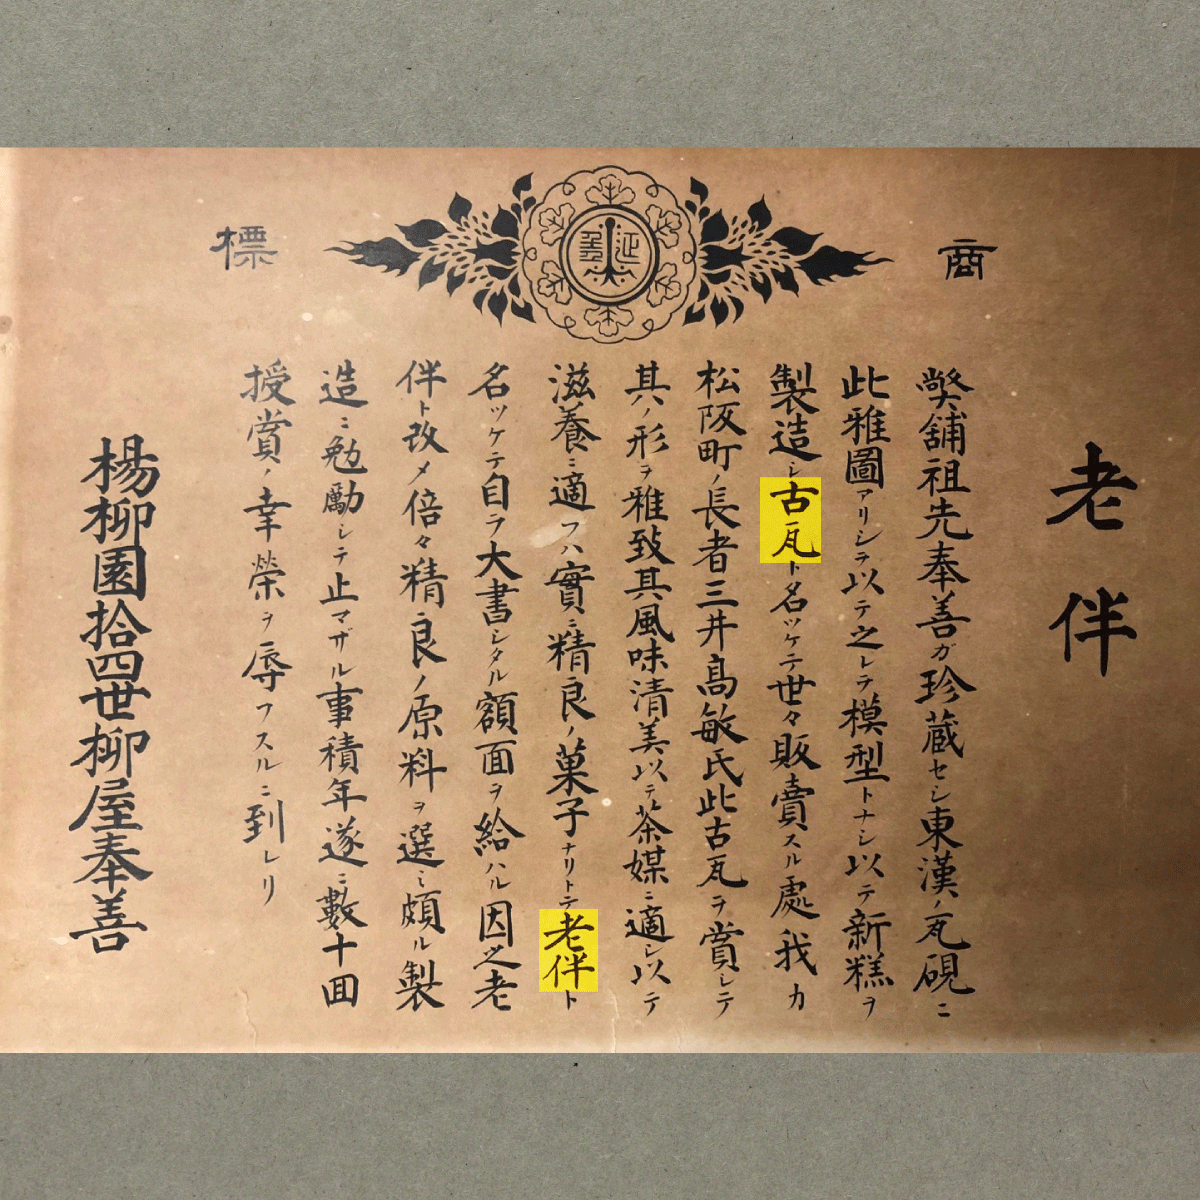 商標
延
壽
老伴
弊舗祖先奉善ガ珍蔵セシ東漢ノ瓦硯ニ
此雅圖アリシヲ以テ之レヲ模型トナシ以テ新糕ヲ
製造シ古瓦ト名ツケテ世々販賣スル處我カ
松阪町ノ長者三井高敏氏此古瓦ヲ賞シテ
其ノ形ヲ雅致其風味清美以テ茶媒ニ適シ以テ
滋養ニ適フハ實ニ精良ノ菓子ナリトテ老伴ト
名ツケテ自ラ大書シタル額面ヲ給ハル因之老
伴ト改メ倍々精良ノ原料ヲ選ミ頗ル製
造ニ勉勵シテ止マザル事積年遂ニ數十回
授賞ノ幸榮ヲ辱フスルニ到レリ
楊柳園拾四世柳屋奉善